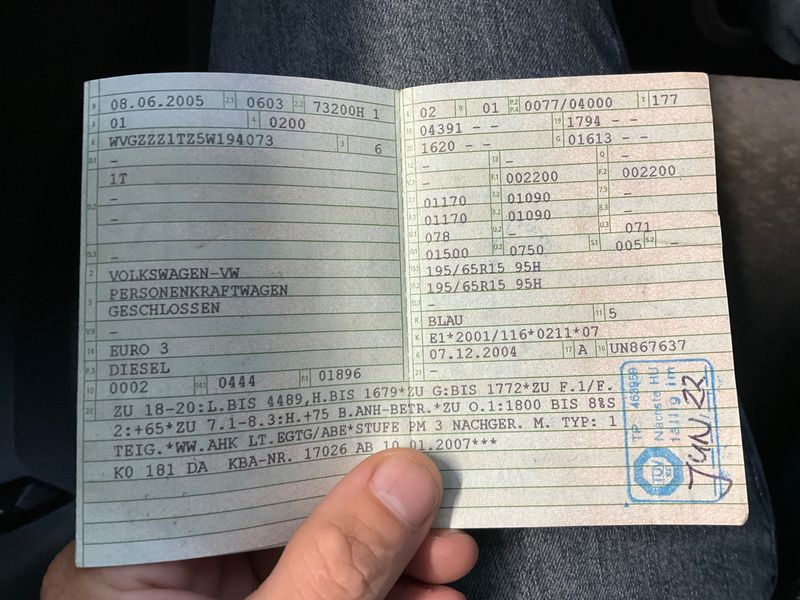 B 08.06.2005 2.1 0603 2.2 73200H 1
J 01 4 0200
E WVGZZZ1TZ5W194073 3 6
D.1 -
1T
D.2 -
-
D.3 -
2 VOLKSWAGEN-VW
5 PERSONENKRAFTWAGEN
GESCHLOSSEN
V.9 -
14 EURO 3
P.3 DIESEL
10 0002 14.1 0444 P.1 01896
L 02 9 01 P.2 P.4 0077/04000 T 177
18 04391 - - 19 1794 - -
20 1620 - - G 01613 - -
12 - 13 - Q -
V.7 - F.1 002200 F.2 002200
7.1 01170 7.2 01090 7.3 -
8.1 01170 8.2 01090 8.3 -
U.1 078 U.2 - U.3 071
O.1 01500 O.2 0750 S.1 005 S.2 -
15.1 195/65R15 95H
15.2 195/65R15 95H
15.3 -
R BLAU 11 5
K E1*2001/116*0211*07
6 07.12.2004 17 A 16 UN867637
21 -
22 ZU 18-20:L.BIS 4489,H.BIS 1679*ZU G:BIS 1772*ZU F.1/F.
2:+65*ZU 7.1-8.3:H.+75 B.ANH-BETR.*ZU O.1:1800 BIS 8%S
TEIG.*WW.AHK LT.EGTG/ABE*STUFE PM 3 NACHGER. M. TYP: 1
K0 181 DA KBA-NR. 17026 AB 10.01.2007***
TP 468959
Nächste HU
fällig im
JUN/22
TÜV